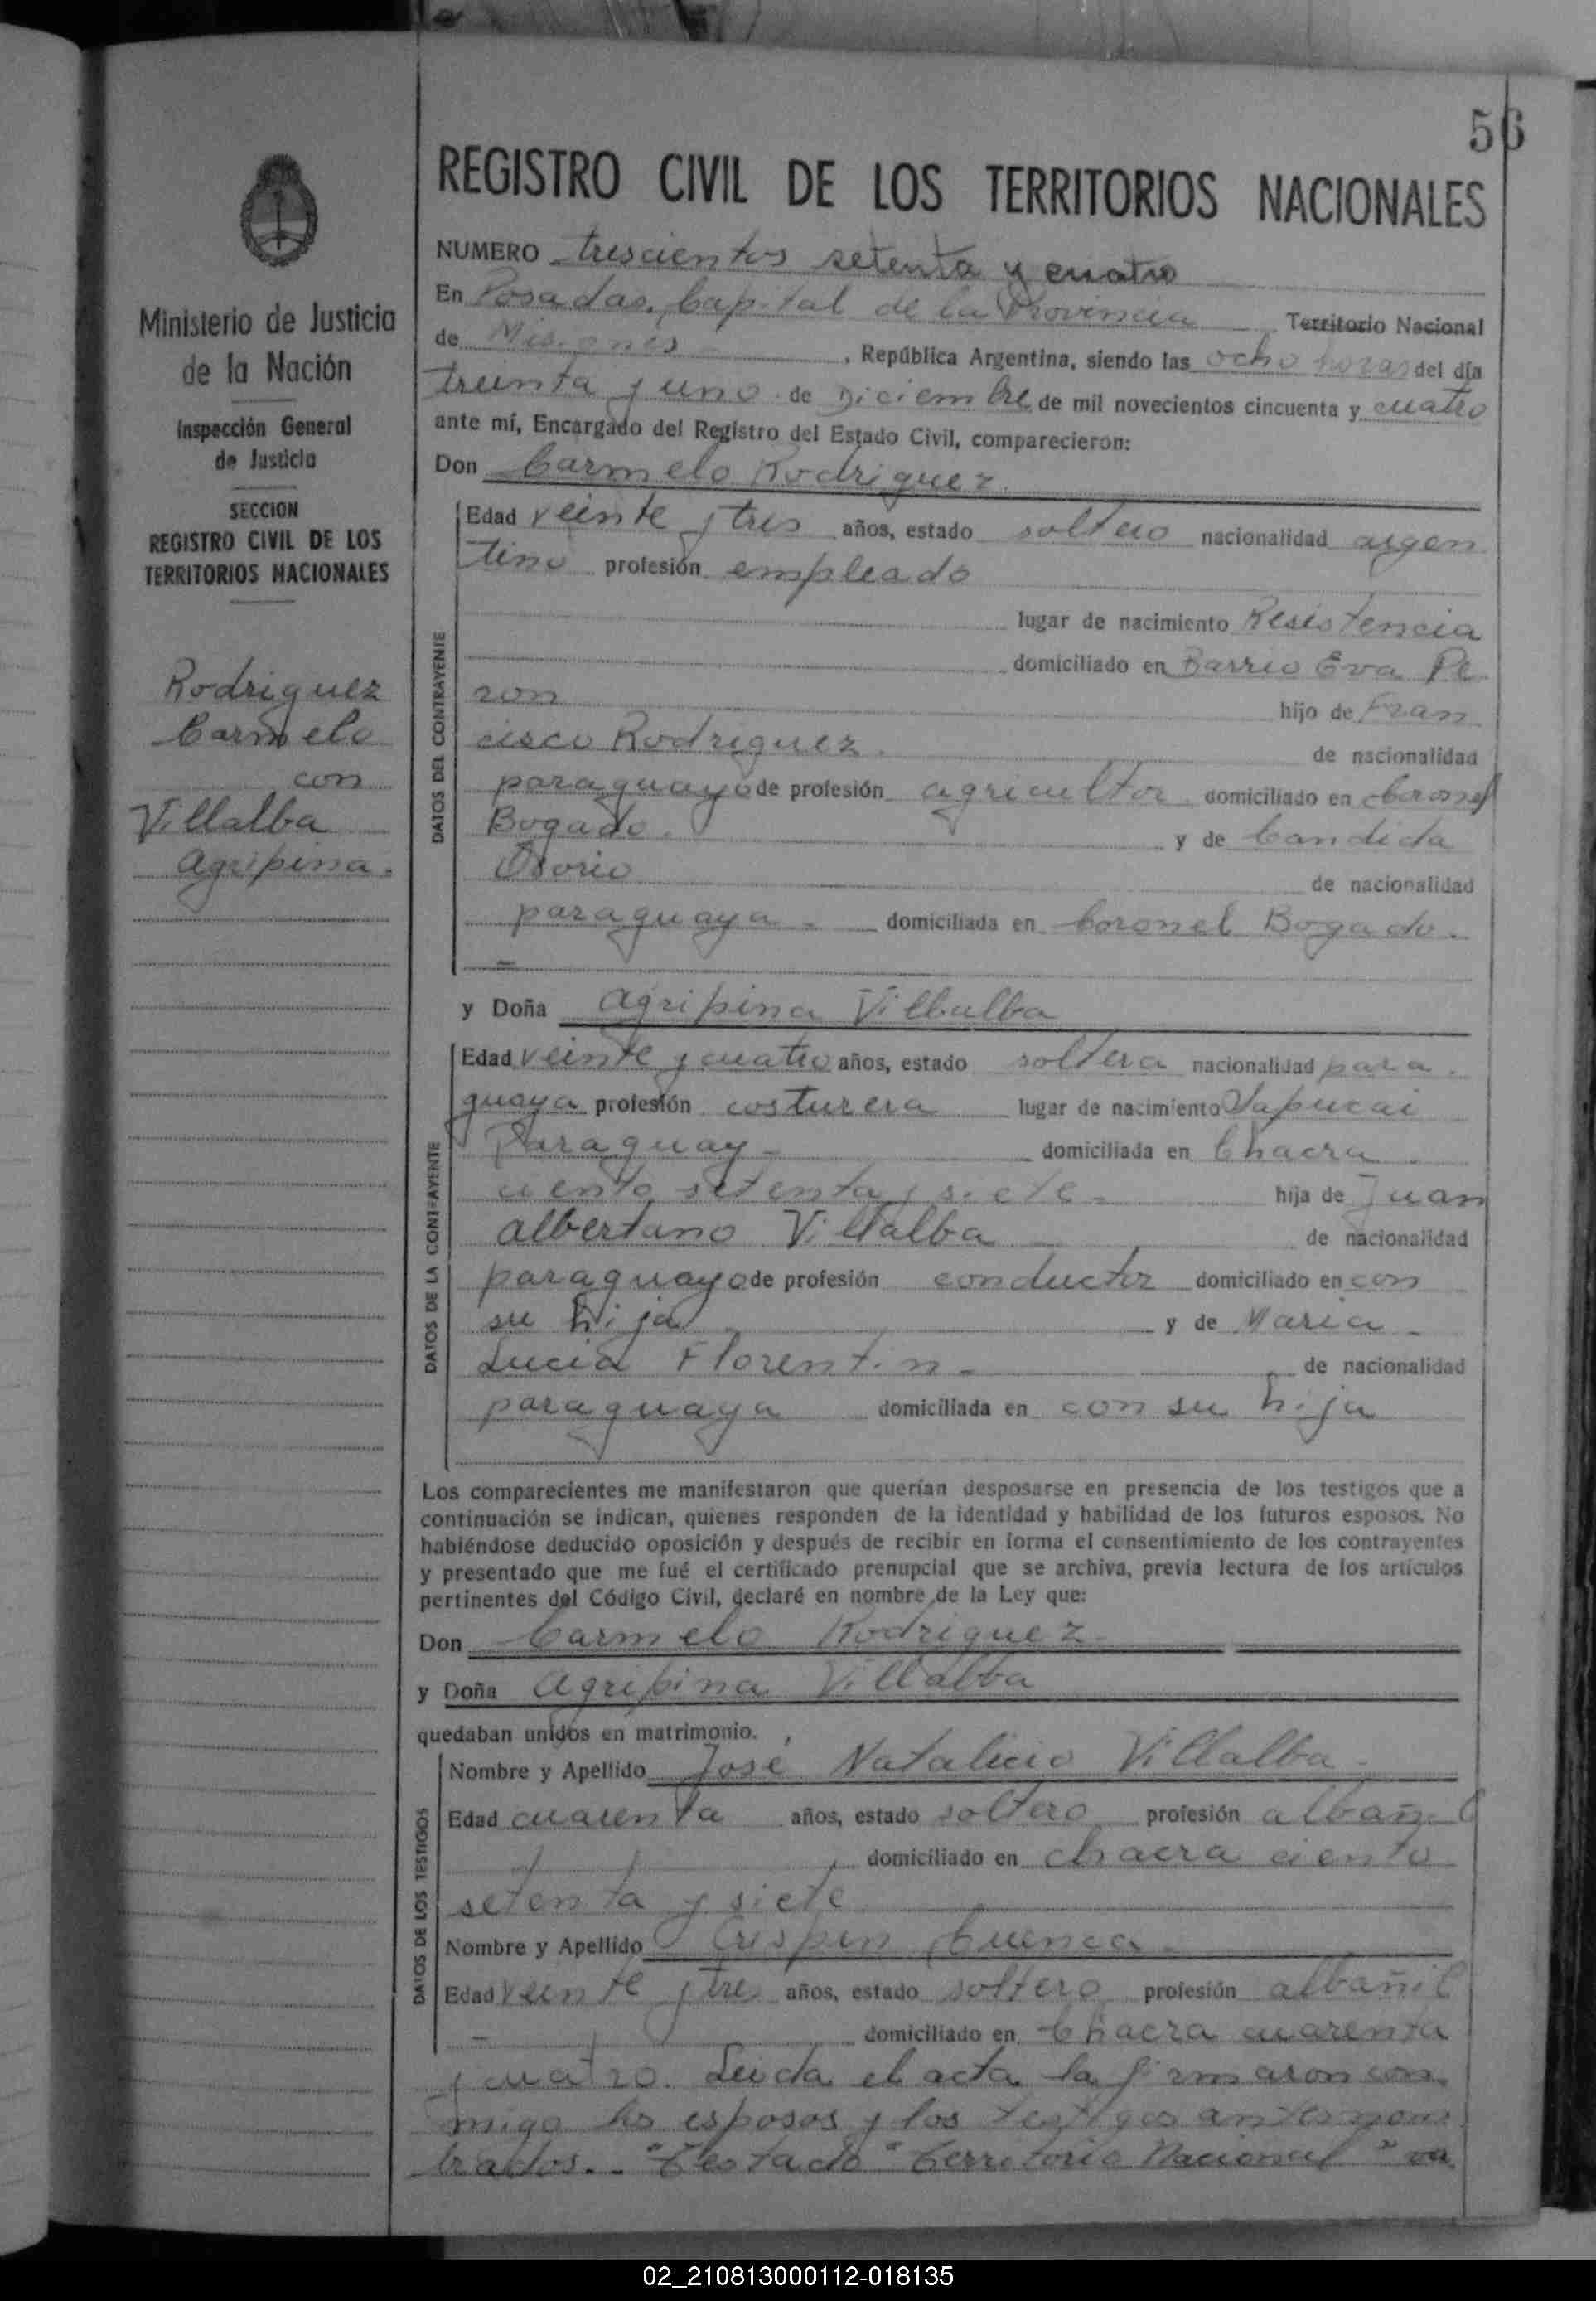 56
REGISTRO CIVIL DE LOS TERRITORIOS NACIONALES
Ministerio de Justicia
de la Nación
Inspección General
de Justicia
SECCION
REGISTRO CIVIL DE LOS
TERRITORIOS NACIONALES
Rodriguez
Carmelo
con
Villalba
Agripina.
NUMERO trescientos setenta y cuatro
En Posadas, Capital de la Provincia Territorio Nacional
de Misiones , República Argentina, siendo las ocho horas del día
treinta y uno de Diciembre de mil novecientos cincuenta y cuatro
ante mí, Encargado del Registro del Estado Civil, comparecieron:
Don Carmelo Rodriguez.
DATOS DEL CONTRAYENTE
Edad veinte y tres años, estado soltero nacionalidad argen
tino profesión empleado
lugar de nacimiento Resistencia
domiciliado en Barrio Eva Pe
ron hijo de Fran
cisco Rodriguez. de nacionalidad
paraguayo de profesión agricultor. domiciliado en Coronel
Bogado. y de Candida
Osorio de nacionalidad
paraguaya - domiciliada en Coronel Bogado.
y Doña Agripina Villalba
DATOS DE LA CONTRAYENTE
Edad veinte y cuatro años, estado soltera nacionalidad para
guaya profesión costurera lugar de nacimiento Sapucai
Paraguay - domiciliada en Chacra
ciento setenta y siete - hija de Juan
Albertano Villalba de nacionalidad
paraguayo de profesión conductor domiciliado en con
su hija y de Maria
Lucia Florentin - de nacionalidad
paraguaya domiciliada en con su hija
Los comparecientes me manifestaron que querían desposarse en presencia de los testigos que a
continuación se indican, quienes responden de la identidad y habilidad de los futuros esposos. No
habiéndose deducido oposición y después de recibir en forma el consentimiento de los contrayentes
y presentado que me fué el certificado prenupcial que se archiva, previa lectura de los artículos
pertinentes del Código Civil, declaré en nombre de la Ley que:
Don Carmelo Rodriguez
y Doña Agripina Villalba
quedaban unidos en matrimonio.
DATOS DE LOS TESTIGOS
Nombre y Apellido José Natalicio Villalba
Edad cuarenta años, estado soltero profesión albañil
domiciliado en chacra ciento
setenta y siete
Nombre y Apellido Crispin Cuenca
Edad veinte y tres años, estado soltero profesión albañil
domiciliado en Chacra cuarenta
y cuatro. Leida el acta la firmaron con
migo los esposos y los testigos antes nom
brados.- "Testado "Territorio Nacional" va
02_210813000112-018135